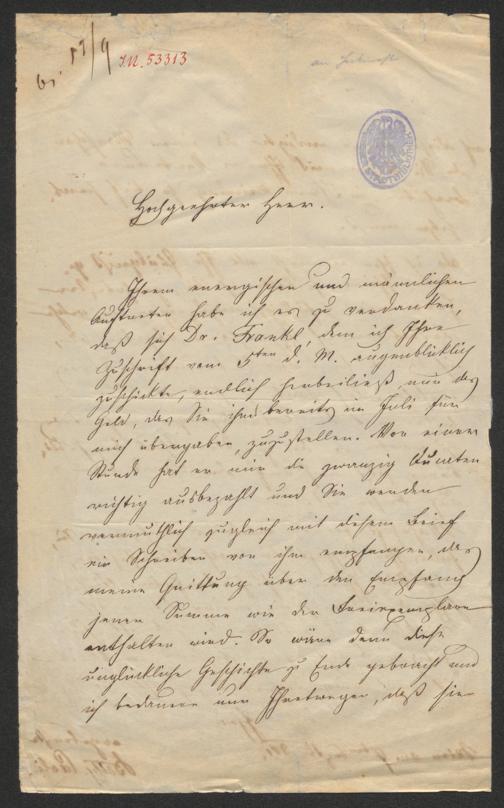 I.N. 53313
Hochgeehrter Herr.
Ihrem energischen und männlichen
Auftreten habe ich es zu verdanken,
daß sich Dr. Frankl, dem ich Ihre
Zuschrift vom 5ten d. M. augenblicklich
zuschickte, endlich herbeiließ, nun das
Geld, das Sie ihm bereits im Juli für
mich übergaben, zuzustellen. Vor einer
Stunde hat er mir die zwanzig Ducaten
richtig ausbezahlt und Sie werden
vermuthlich zugleich mit diesem Brief
ein Schreiben von ihm empfangen, das
meine Quittung über den Empfang
jener Summe wie der Freiexemplare
enthalten wird. So wäre denn diese
unglückliche Geschichte zu Ende gebracht und
ich bedauere nur Ihretwegen, daß sie